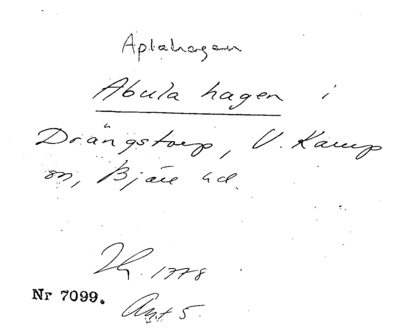 Aplahagen
Abula hagen i
Drängstorp, V. Karup
sn, Bjäre hd.
1778
Nr 7099.